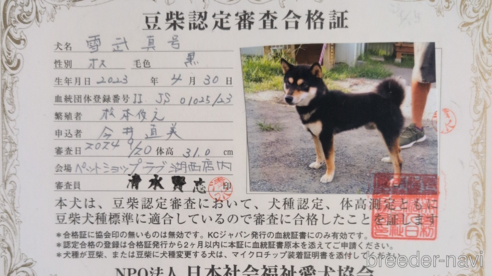 豆柴認定審査合格証
犬名 雷武真号
性別 オス 毛色 黒
生年月日 2023 年 4 月 30 日
血統団体登録番号 II JS 01025/23
繁殖者 松本俊之
申込者 今井直美
審査日 2024 9/20 体高 31.0 cm
会場 ペットショップラブ湖西店内
審査員 清水 志 印
本犬は、豆柴認定審査において、犬種認定、体高測定ともに
豆柴犬種標準に適合しているので審査に合格したことを証します
＊合格証に協会印の無いものは無効です。KCジャパン発行の血統証明書にのみ有効です。
＊認定合格の登録は合格証発行から2ヶ月以内に本証に血統証書原本を添えてご申請ください。
＊犬種が豆柴、または豆柴に犬種変更する犬は、マイクロチップ装着証明書を添付してください。
NPO法人 日本社会福祉愛犬協会
breeder-navi